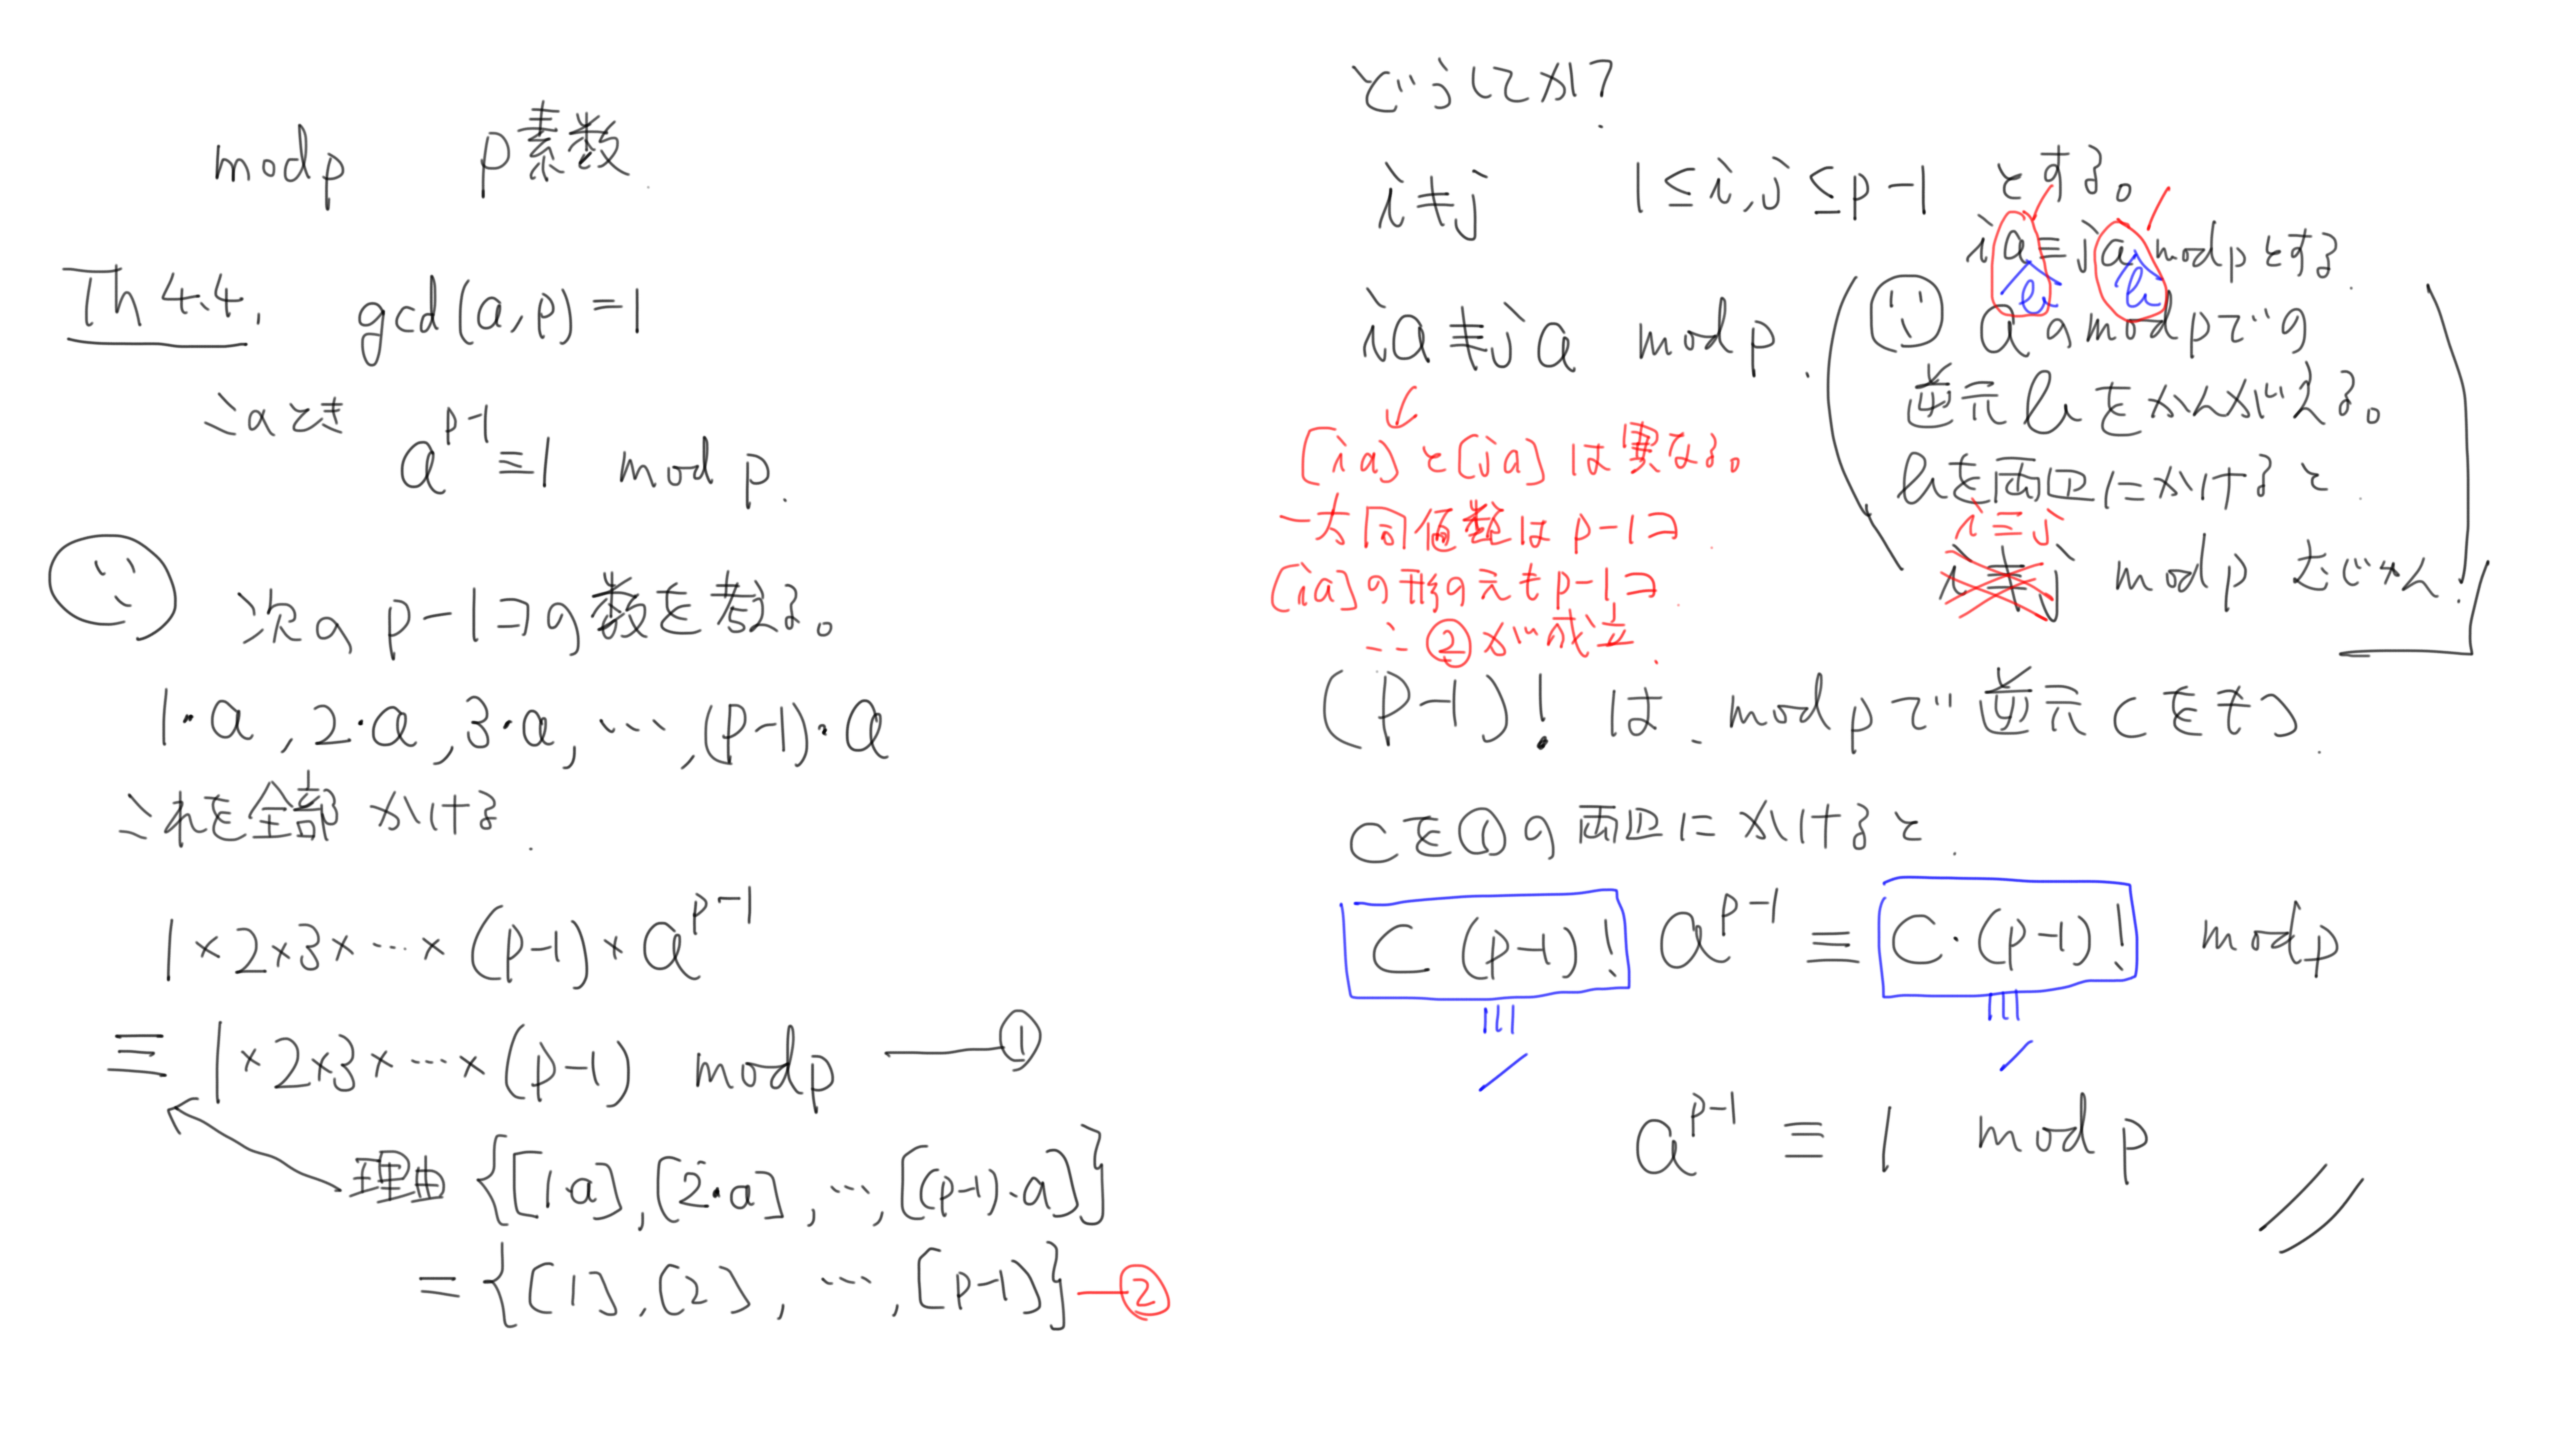 mod p p素数.
Th 4.4. gcd(a,p)=1
このとき
a^{p-1}≡1 mod p.
次の p-1コの数を考える。
1・a, 2・a, 3・a, …, (p-1)・a
これを全部 かける.
1×2×3×…×(p-1)×a^{p-1}
≡ 1×2×3×…×(p-1) mod p ―①
理由 {[1・a], [2・a], …, [(p-1)・a]}
= {[1], [2], …, [p-1]} ―②
どうしてか?
i≢j 1≤i,j≤p-1 とする。
ia≢ja mod p.
[ia]と[ja]は異なる。
一方同値数は p-1コ.
[ia]の形の元もp-1コ.
∴ ②が成立.
ia≡ja mod p とする.
b b
aのmod pでの
逆元 bをかんがえる。
bを両辺にかけると.
i≡j
i≢j mod p むじゅん.
(p-1)! は、mod pで逆元cをもつ.
cを①の両辺にかけると.
c (p-1)! a^{p-1} ≡ c・(p-1)! mod p
||| |||
1 1
a^{p-1} ≡ 1 mod p